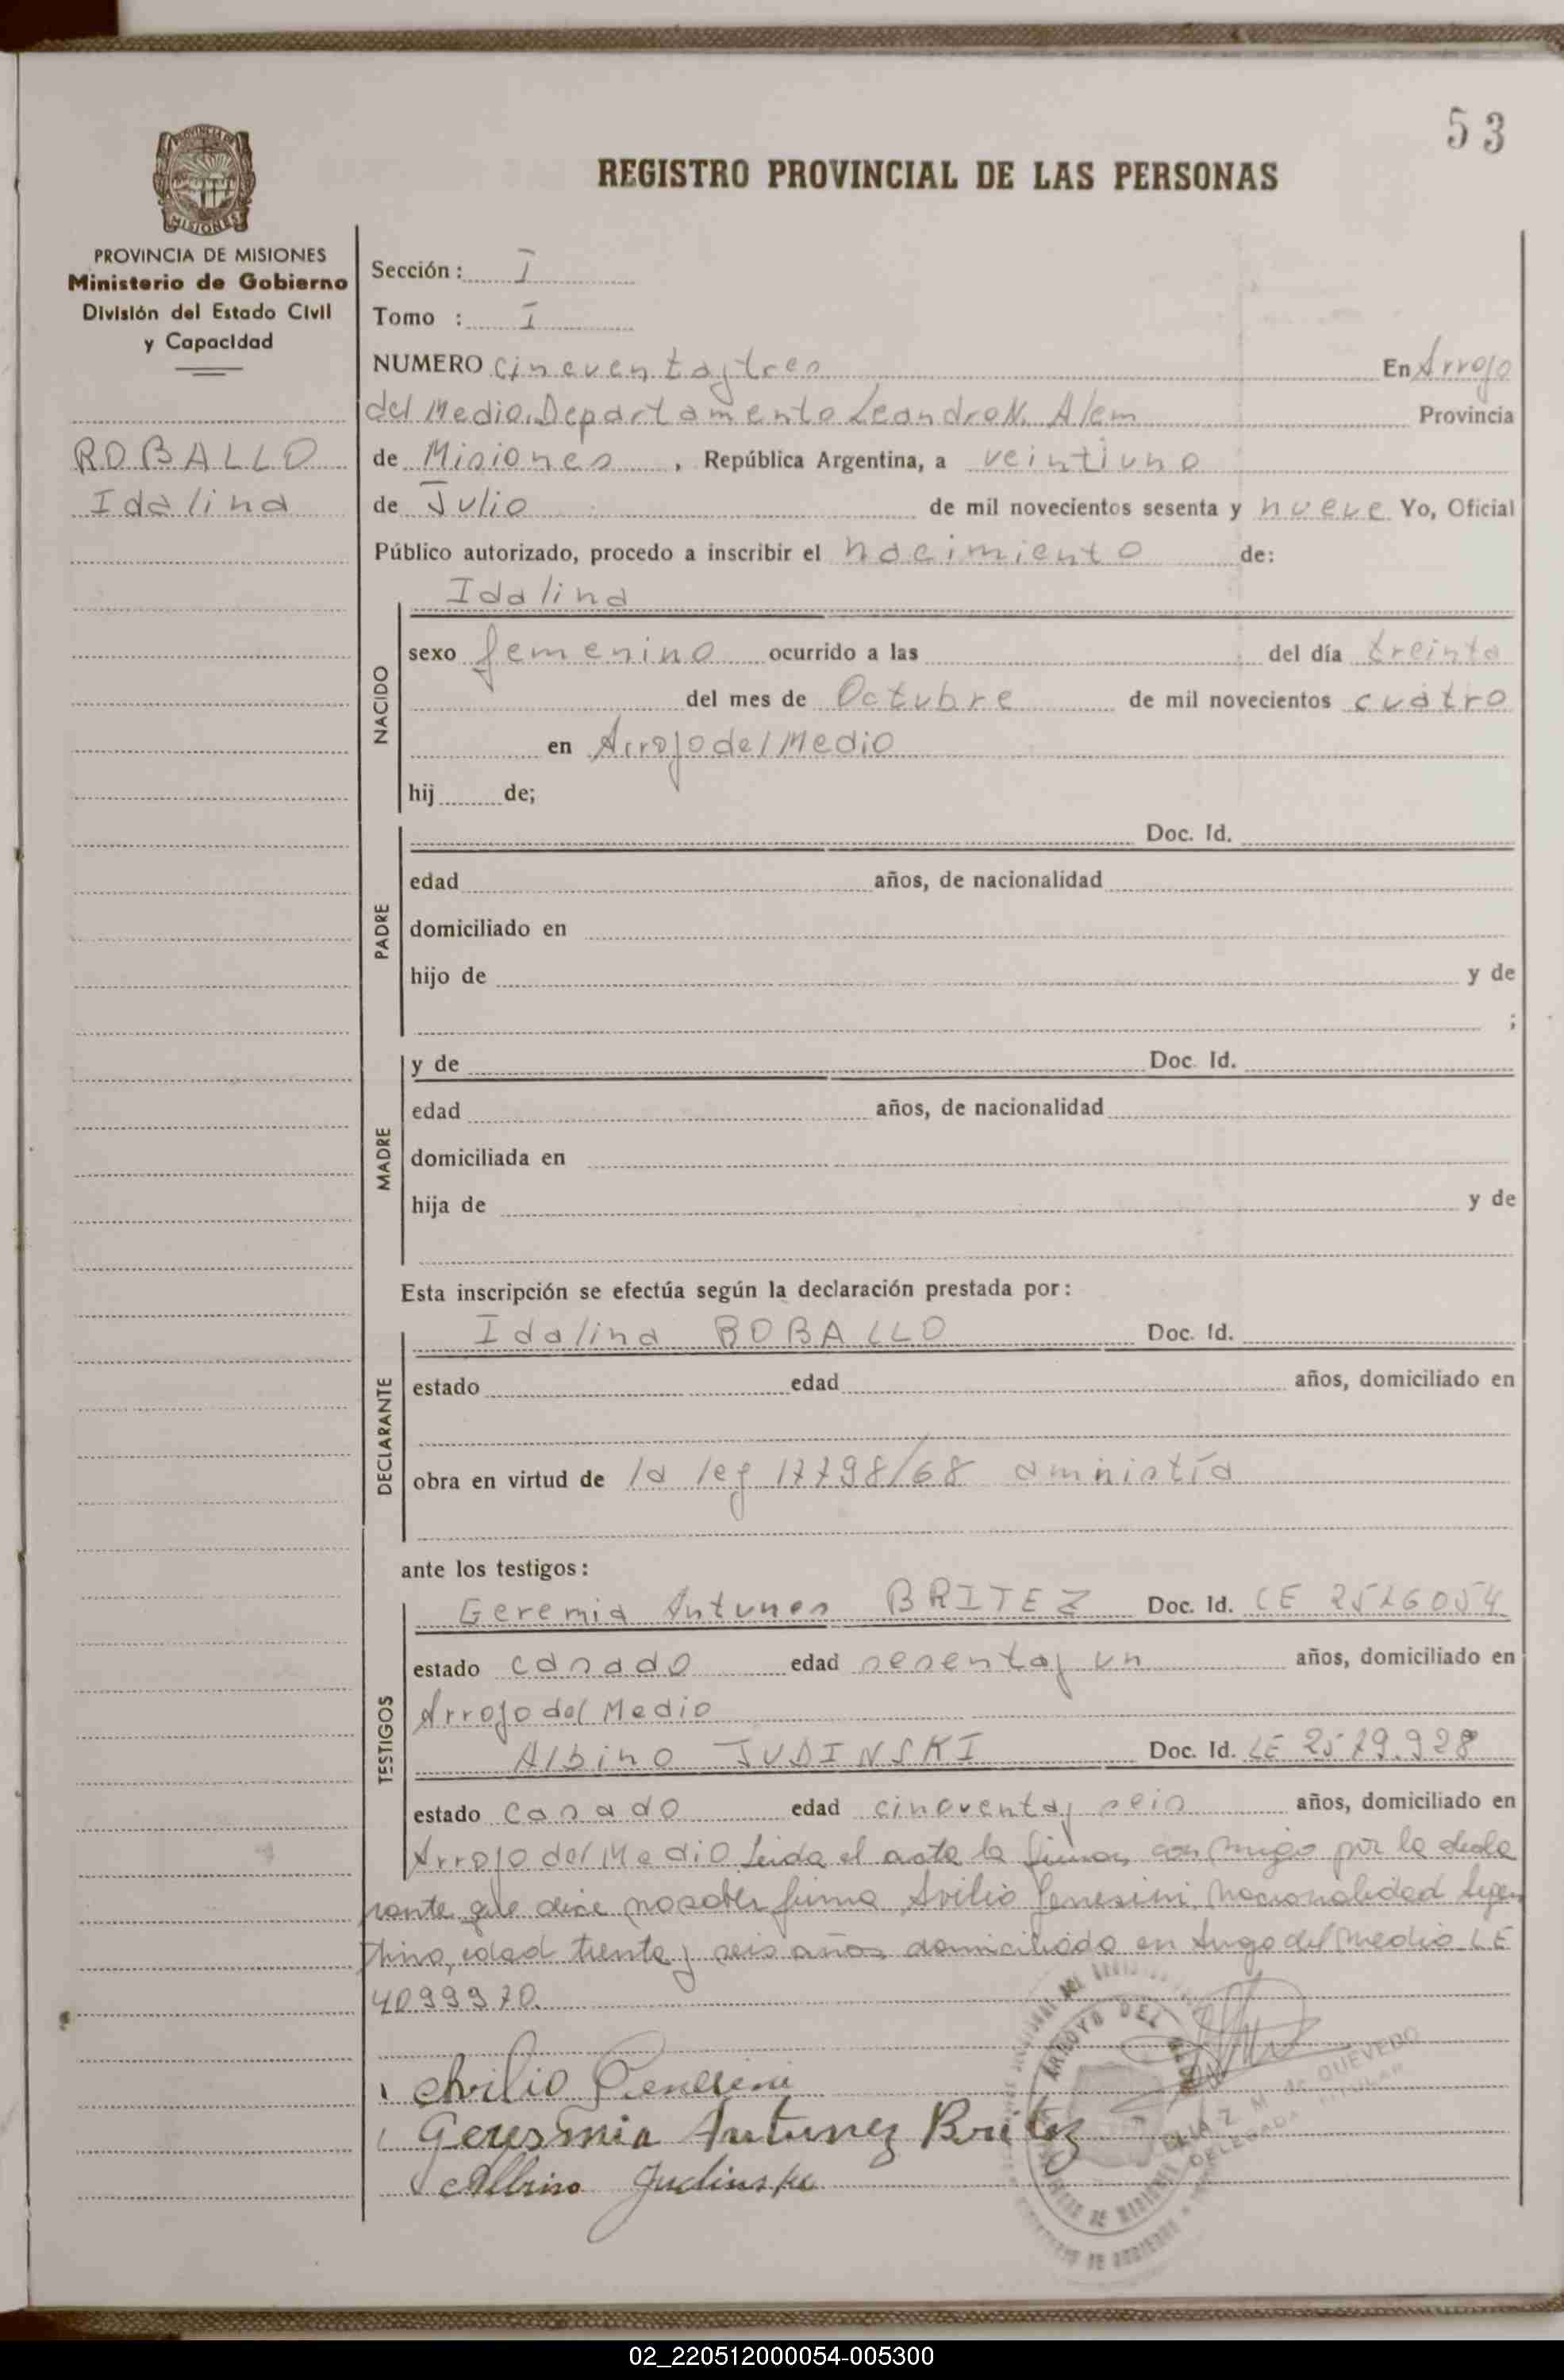 53
REGISTRO PROVINCIAL DE LAS PERSONAS
MISIONES
PROVINCIA DE MISIONES
Ministerio de Gobierno
División del Estado Civil
y Capacidad
ROBALLO
Idalina
Sección: I
Tomo : I
NUMERO cincuentaytres En Arroyo
del Medio, Departamento Leandro N. Alem Provincia
de Misiones, República Argentina, a veintiuno
de Julio de mil novecientos sesenta y nueve Yo, Oficial
Público autorizado, procedo a inscribir el nacimiento de:
NACIDO
Idalina
sexo femenino ocurrido a las del día treinta
del mes de Octubre de mil novecientos cuatro
en Arroyo del Medio
hij de;
PADRE
Doc. Id.
edad años, de nacionalidad
domiciliado en
hijo de y de
;
MADRE
y de Doc. Id.
edad años, de nacionalidad
domiciliada en
hija de y de
Esta inscripción se efectúa según la declaración prestada por:
DECLARANTE
Idalina ROBALLO Doc. Id.
estado edad años, domiciliado en
obra en virtud de la ley 17798/68 amnistía
ante los testigos:
TESTIGOS
Geremia Antunes BRITEZ Doc. Id. LE 2526054
estado casado edad sesentay un años, domiciliado en
Arroyo del Medio
Albino JUDINSKI Doc. Id. LE 2579.928
estado casado edad cincuentay seis años, domiciliado en
Arroyo del Medio Leida el acta la firman conmigo por la decla
rante que dice no saber firma Avilio Genesini, Nacionalidad Argen
thino, edad trenta y seis años domiciliado en Arroyo del Medio LE
4099970.
Avilio Genesini
Geresmia Antunez Britez
Albino Judinski
ARROYO DEL MEDIO
ELIA Z. M. de QUEVEDO
DELEGADA TITULAR
02_220512000054-005300